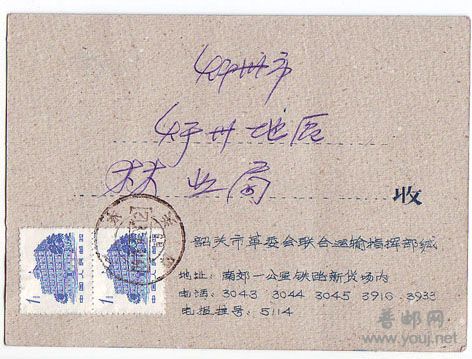 郴州市
郴州地区
林业局
收
韶关市革委会联合运输指挥部缄
地址：南郊一公里铁路新货场内
电话：3043 3044 3045 3916 3933
电报挂号：5114
普邮网
www.youj.net